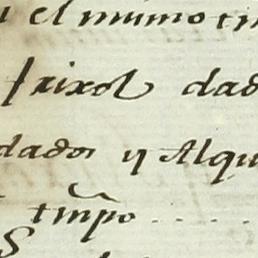 el mismo ti
frixol dad
dados y Alqu
tmpo